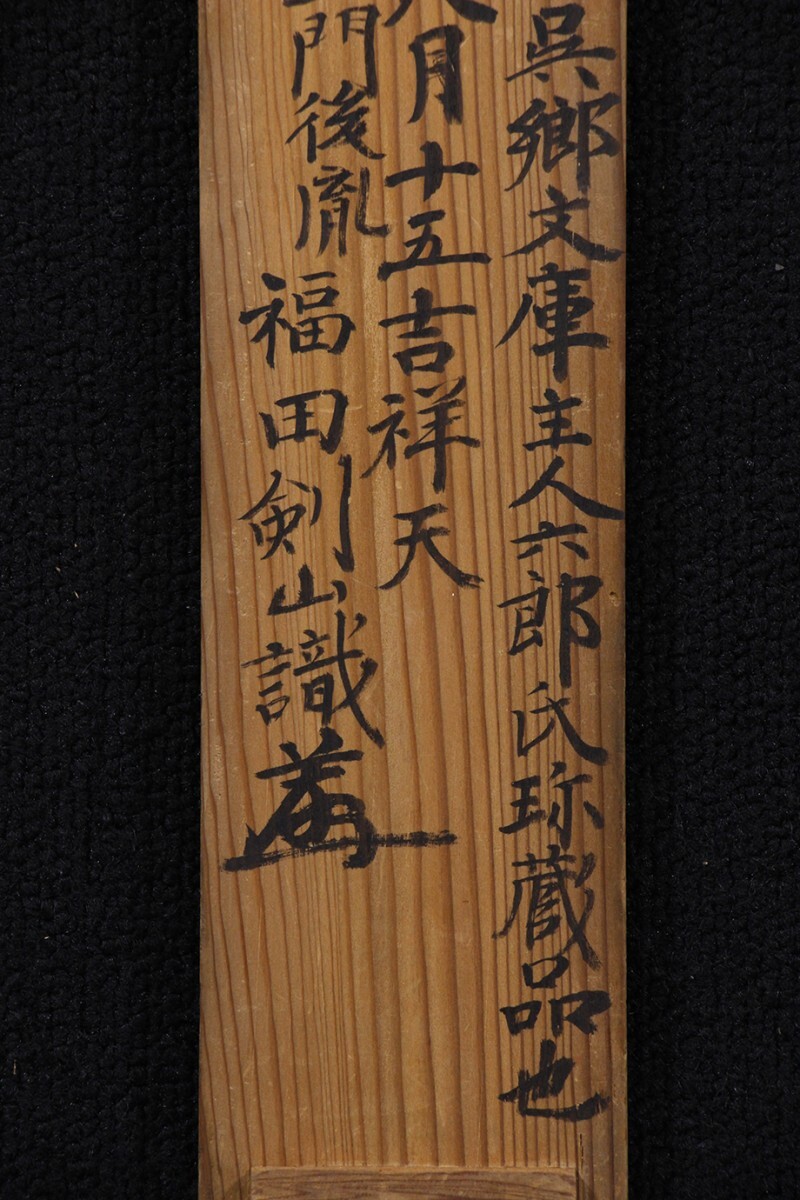 呉郷文庫主人六郎氏珎蔵品也
八月十五吉祥天
門後胤 福田剣山識